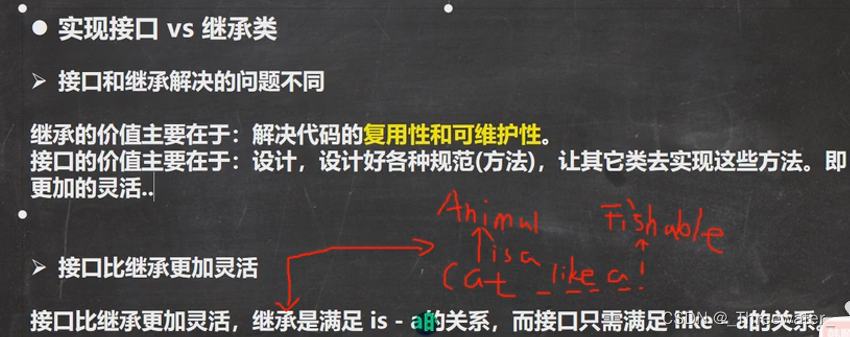 实现接口 vs 继承类
接口和继承解决的问题不同
继承的价值主要在于：解决代码的复用性和可维护性。
接口的价值主要在于：设计，设计好各种规范(方法)，让其它类去实现这些方法。即
更加的灵活..
Animal Fishable
is a
接口比继承更加灵活
Cat like a
接口比继承更加灵活，继承是满足 is - a的关系，而接口只需满足 like - a的关系。